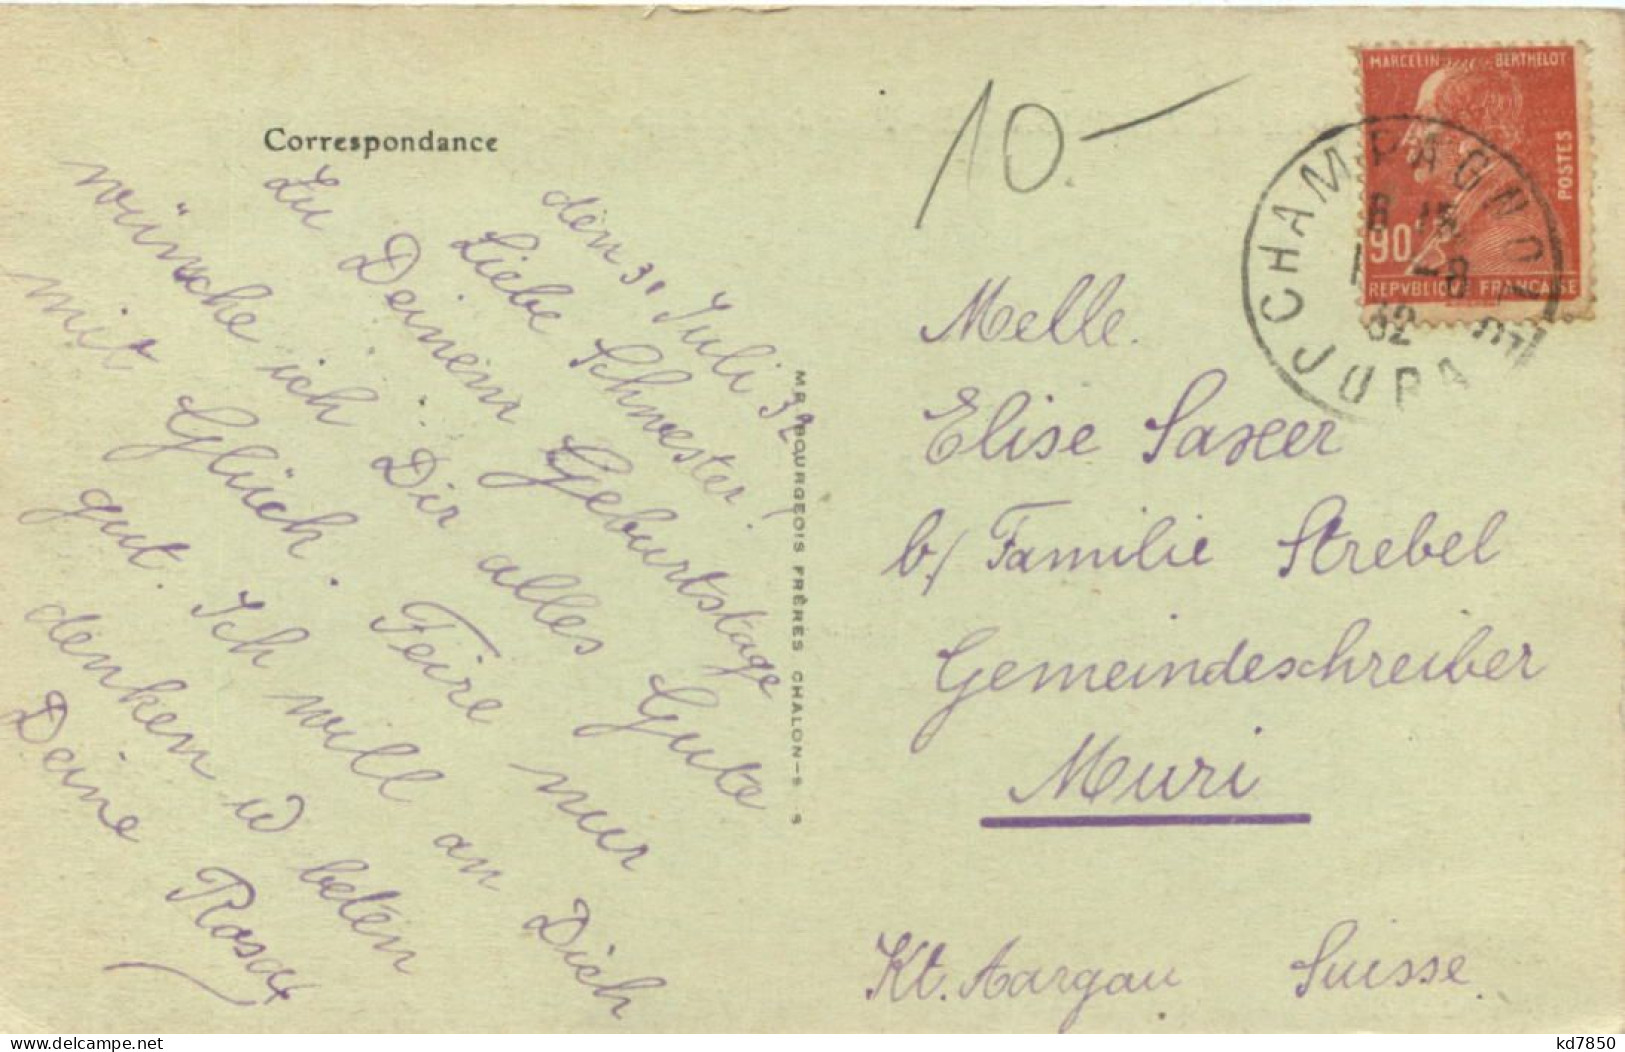 Correspondance
den 31. Juli 32
Liebe Schwester!
Zu Deinem Geburtstage
wünsche ich Dir alles Gute
mit Glück. Feire nur
gut. Ich will an Dich
denken u beten
Deine Rosa
MR BOURGEOIS FRÈRES CHALON-S-S
10.-
MARCELIN BERTHELOT
POSTES
90
REPVBLIQUE FRANÇAISE
CHAMPAGNOLE
JURA
-8
32
Melle.
Elise Saxer
b/ Familie Strebel
Gemeindeschreiber
Muri
Kt. Aargau Suisse.
kd7850